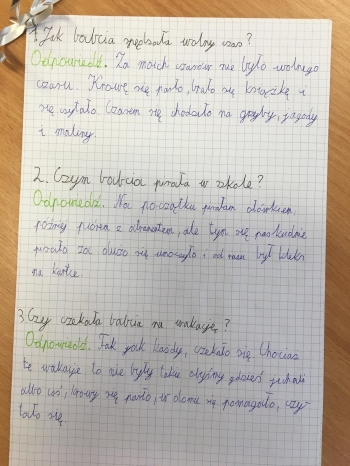 1. Jak babcia spędzała wolny czas?
Odpowiedź. Za moich czasów nie było wolnego
czasu. Krowę się pasło, brało się książkę i
się czytało. Czasem się chodziło na grzyby, jagody
i maliny.
2. Czym babcia pisała w szkole?
Odpowiedź. Na początku pisałam ołówkiem,
później piórem z atramentem, ale tym się paskudnie
pisało za dużo się umoczyło i od razu był kleks
na kartce.
3. Czy czekała babcia na wakacje?
Odpowiedź. Tak jak każdy, czekało się. Chociaż
te wakacje to nie były takie abyśmy gdzieś jechali
albo coś, krowy się pasło, w domu się pomagało, czy-
tało się